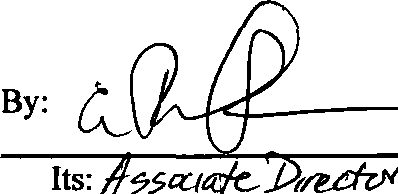 By:
Its: Associate Director